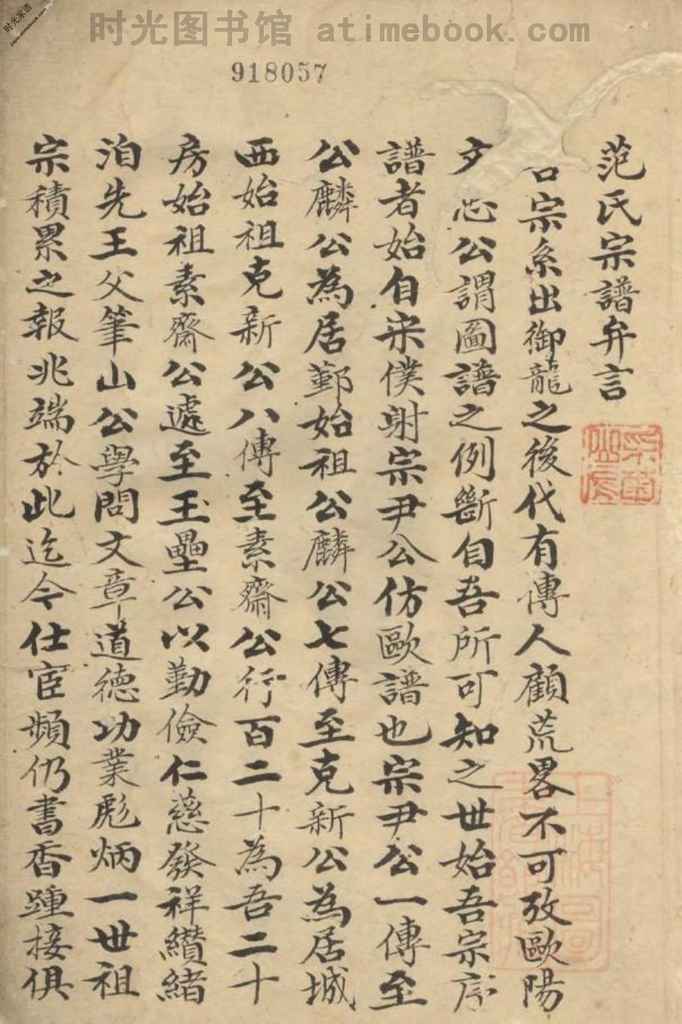 时光图书馆 atimebook.com
918057
范氏宗譜弁言
宗系出御龍之後代有傳人顧荒畧不可攷歐陽
文忠公謂圖譜之例斷自吾所可知之世始吾宗序
譜者始自宋僕射宗尹公仿歐譜也宗尹公一傳至
公麟公為居鄞始祖公麟公七傳至克新公為居城
西始祖克新公八傳至素齋公行百二十為吾二十
房始祖素齋公遞至玉壘公以勤儉仁慈發祥纘緒
洎先王父筆山公學問文章道德功業彪炳一世祖
宗積累之報兆端於此迄今仕宦頻仍書香踵接俱